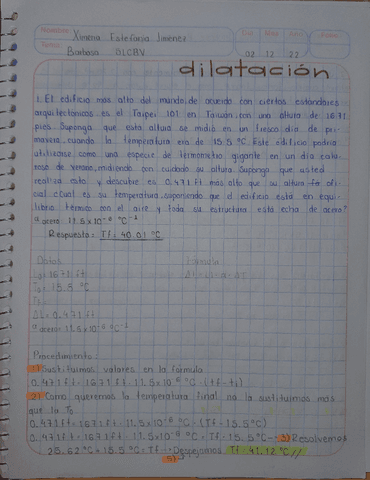 Nombre: Ximena Estefania Jiménez
Tema: Barbosa 3LCBV
Día Mes Año Folio
02 12 22
dilatación
1. El edificio mas alto del mundo, de acuerdo con ciertos estándares
arquitectonicos es el Taipei 101 en Taiwán, con una altura de 1671
pies. Suponga que esta altura se midió en un fresco día de pri-
mavera, cuando la temperatura era de 15.5 °C. Este edificio podría
utilizarse como una especie de termometro gigante en un día calu-
roso de verano, midiendo con cuidado su altura. Suponga que usted
realiza esto y descubre es 0.471 ft mas alto que su altura ofi-
cial ¿Cual es su temperatura, suponiendo que el edificio está en equi-
librio termico con el aire y toda su estructura está echa de acero?
α acero: 11.5x10⁻⁶ °C⁻¹
Respuesta: Tf= 40.01 °C
Datos Formula
Lo= 1671 ft ΔL=L·α·ΔT
To= 15.5 °C
Tf=
ΔL= 0.471 ft
α acero= 11.5x10⁻⁶ °C⁻¹
Procedimiento:
1) Sustituimos valores en la formula
0.471 ft= 1671 ft· 11.5x10⁻⁶ °C· (tf-ti)
2) Como queremos la temperatura final no la sustituimos mas
que la To
0.471 ft= 1671 ft· 11.5x10⁻⁶ °C · (Tf-15.5°C)
0.471 ft= 1671 ft· 11.5x10⁻⁶ °C= Tf- 15.5 °C→ 3) Resolvemos
25.62 °C+15.5 °C= Tf → Despejamos Tf= 41.12 °C //
5)